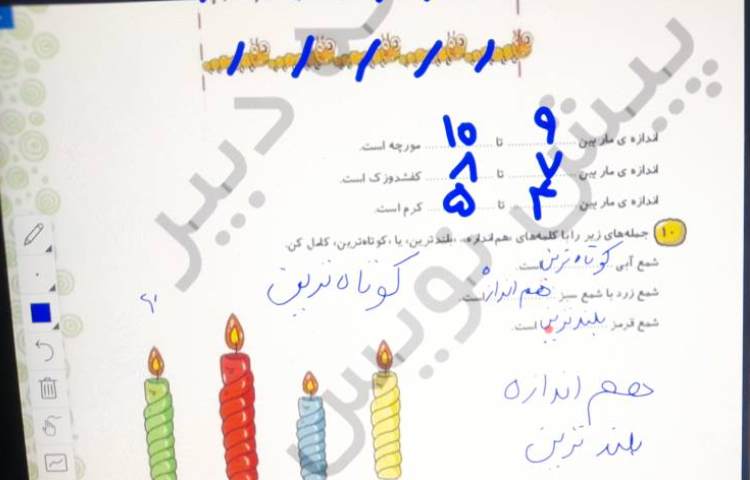 اندازه ی مار بین ۹ تا ۱۰ مورچه است.
اندازه ی مار بین ۷ تا ۸ کفشدوزک است.
اندازه ی مار بین ۴ تا ۵ کرم است.
۱۰ جمله‌های زیر را با کلمه‌های «هم‌اندازه»، «بلندترین» یا «کوتاه‌ترین» کامل کن.
شمع آبی کوتاه ترین است.
شمع زرد با شمع سبز هم اندازه است.
شمع قرمز بلندترین است.
کوتاه ترین
هم اندازه
بلند ترین
پیش نویس
دبیر